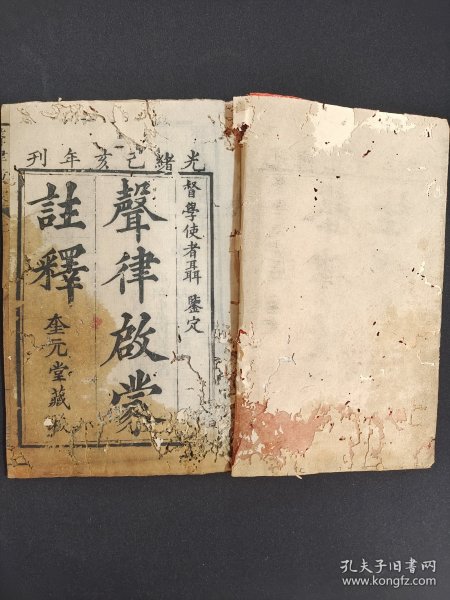 光緒己亥年刊
督學使者聶 鑒定
聲律啟蒙
註釋
奎元堂藏板
孔夫子旧书网
www.kongfz.com